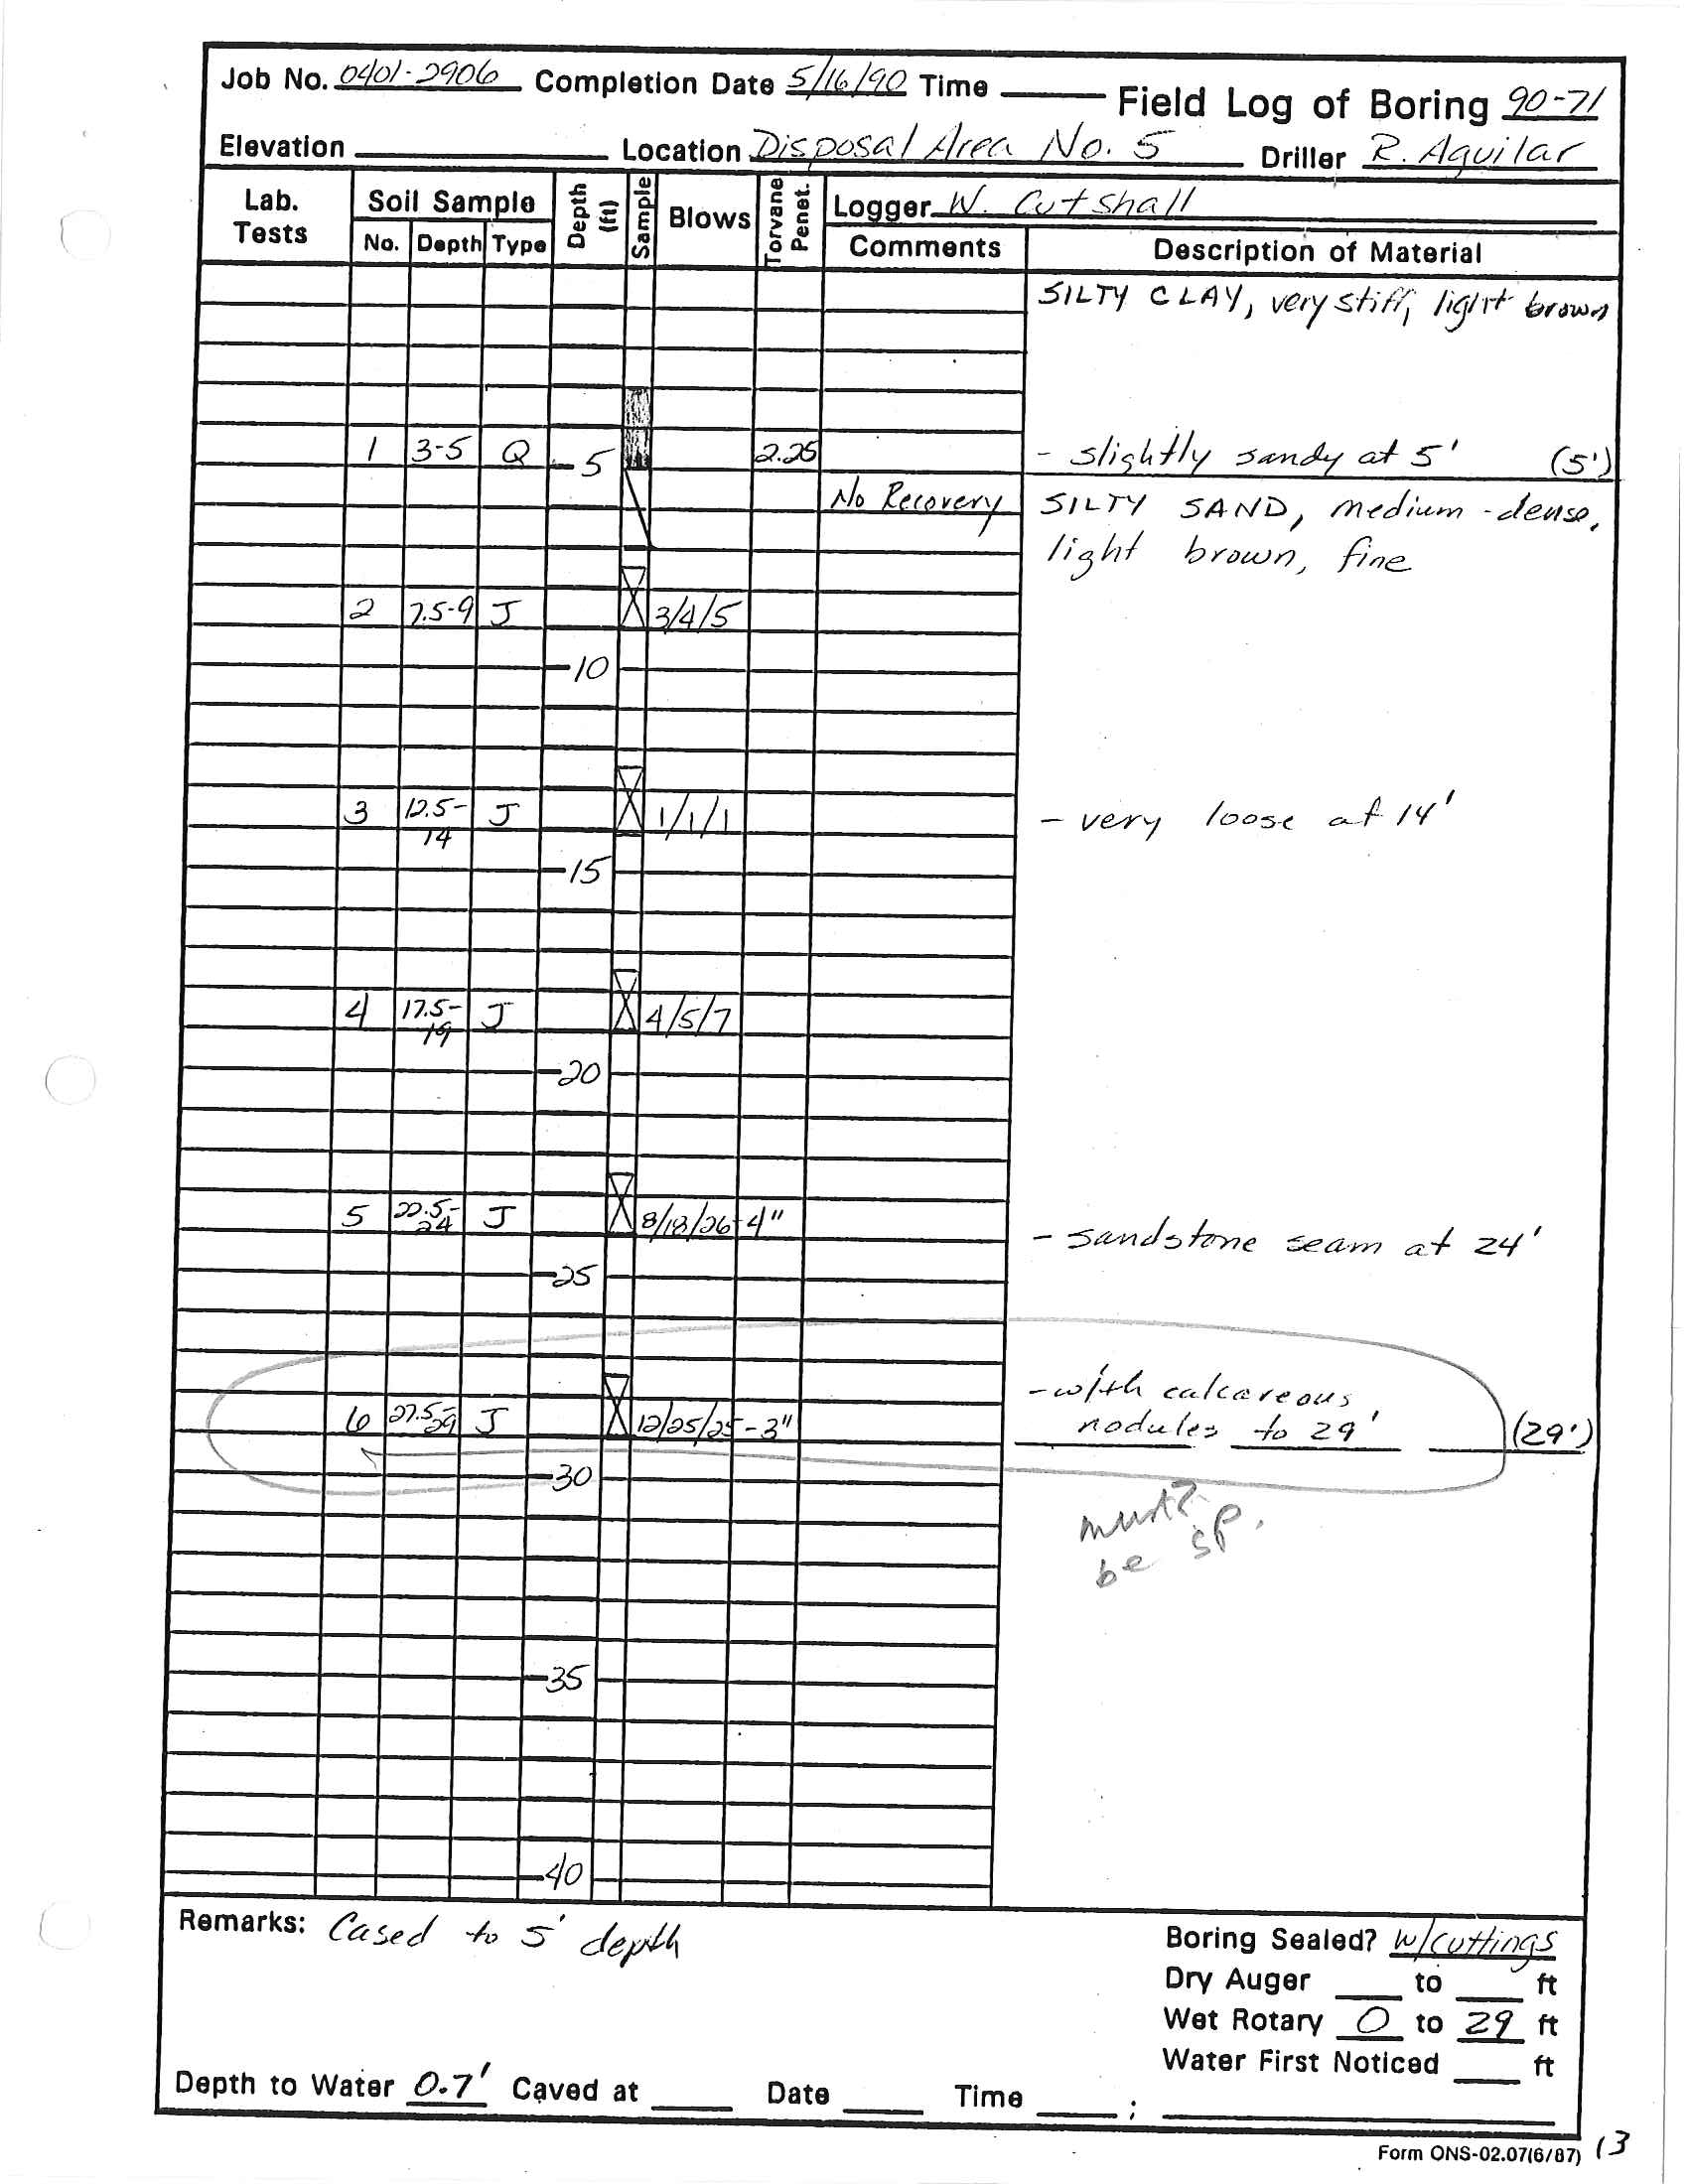 Job No. 0401-2906 Completion Date 5/16/90 Time Field Log of Boring 90-71
Elevation Location Disposal Area No. 5 Driller R. Aguilar
Lab. Tests Soil Sample Depth (ft) Sample Blows Torvane Penet. Logger W. Cutshall
No. Depth Type Comments Description of Material
SILTY CLAY, very stiff, light brown
1 3-5 Q 5 2.25 - slightly sandy at 5' (5')
No Recovery SILTY SAND, medium-dense,
light brown, fine
2 7.5-9 J 3/4/5
10
3 12.5-14 J 1/1/1 - very loose at 14'
15
4 17.5-19 J 4/5/7
20
5 22.5-24 J 8/18/26-4" - sandstone seam at 24'
25
- with calcareous
6 27.5-29 J 12/25/25-3" nodules to 29' (29')
30
must?
be SP.
35
40
Remarks: Cased to 5' depth
Boring Sealed? w/cuttings
Dry Auger to ft
Wet Rotary 0 to 29 ft
Water First Noticed ft
Depth to Water 0.7' Caved at Date Time ;
Form ONS-02.07(6/87) 13